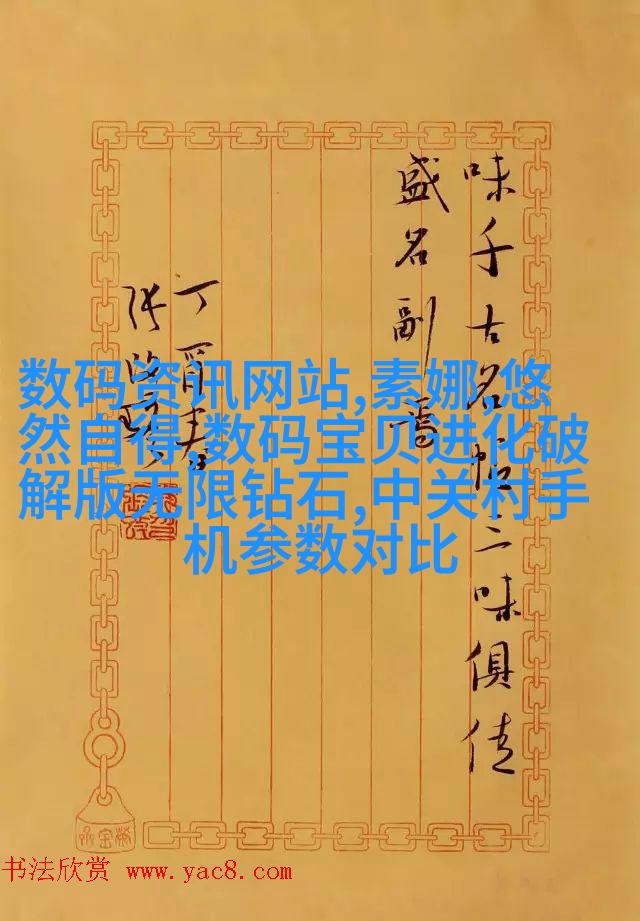 味千古名帖三味俱佳
盛名副
丁酉春
张改琴
数码资讯网站,素娜·悠
然自得,数码宝贝进化破
解版无限钻石,中关村手
机参数对比
书法欣赏 www.yac8.com